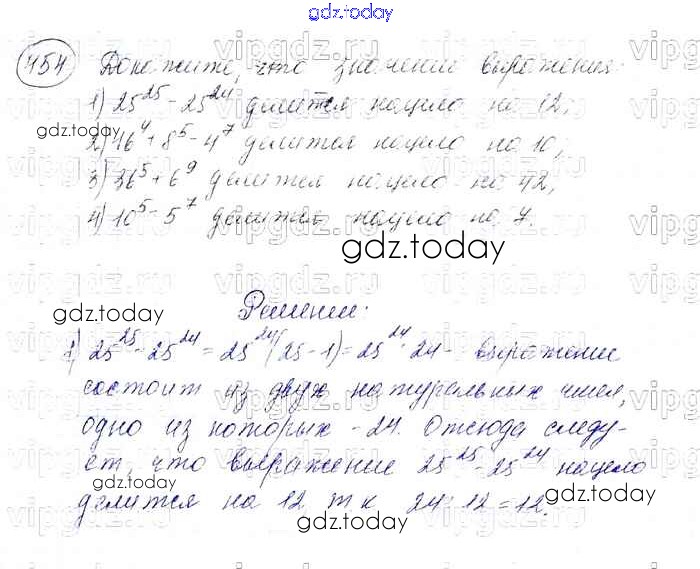 gdz.today
454 Докажите, что значение выражения:
1) 25^25 - 25^24 делится нацело на 12;
gdz.today
2) 16^4 + 8^5 - 4^7 делится нацело на 10;
3) 36^5 + 6^9 делится нацело на 42;
4) 10^5 - 5^7 делится нацело на 7.
gdz.today
gdz.today
Решение:
1) 25^25 - 25^24 = 25^24 (25 - 1) = 25^24 · 24 - выражение
состоит из двух натуральных чисел,
одно из которых - 24. Отсюда следу-
ет, что выражение 25^25 - 25^24 нацело
делится на 12 т к 24 : 12 = 12.
gdz.today
gdz.today